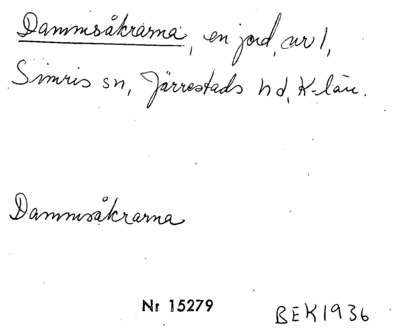 Dammsåkrarna, en jord, nr 1,
Simris sn, Järrestads hd, K-län.
Dammsåkrarna
Nr 15279
BEK1936